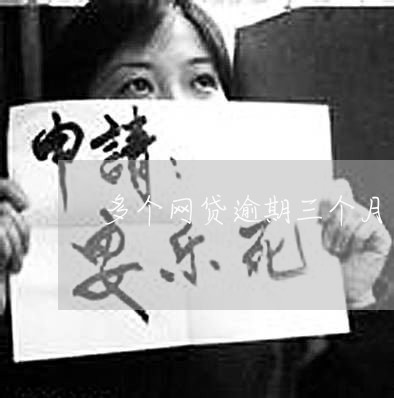 申請：
多个网贷逾期三个月
安乐死